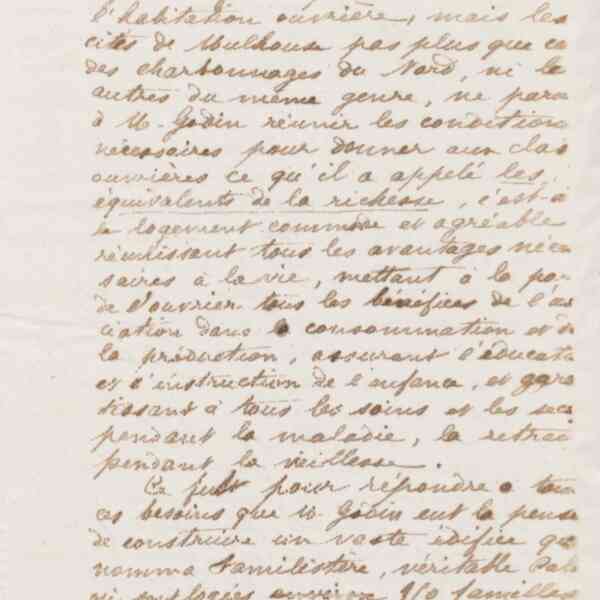 l'habitation ouvrière, mais les
cités de Mulhouse pas plus que ce
des charbonnages du Nord, ni le
autres du même genre, ne para
à M. Godin réunir les condition
nécessaires pour donner aux clas
ouvrières ce qu'il a appelé les
équivalents de la richesse, c'est-à
le logement commode et agréable
réunissant tous les avantages néce
saires à la vie, mettant à la po-
de l'ouvrier tous les bénéfices de l'as
ciation dans la consommation et d
la production, assurant l'éducat
et l'instruction de l'enfance, et gara
tissant à tous les soins et les sec
pendant la maladie, la retrai
pendant la vieillesse.
Ce fut pour répondre à tou
ces besoins que M. Godin eut la pensé
de construire un vaste édifice qu
nomma Familistère, véritable Pal
où sont logées environ familles